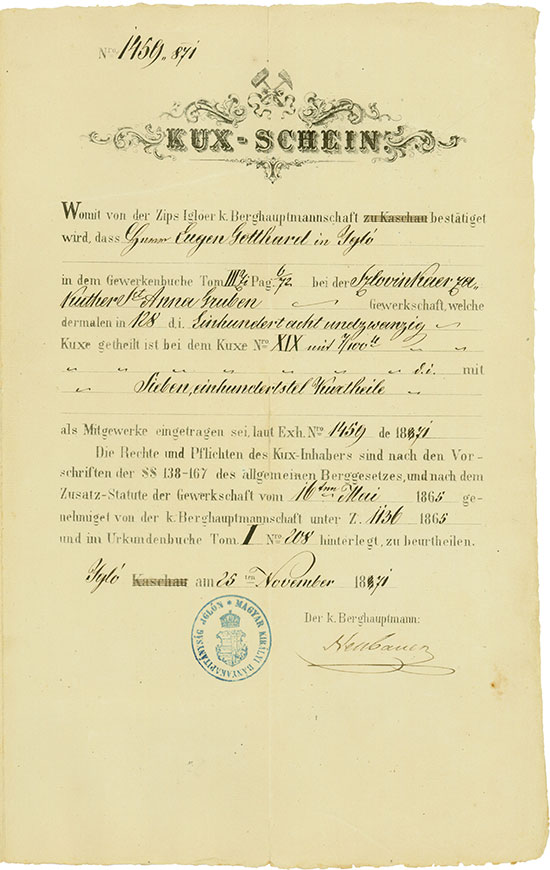 Nro. 1459. 871
KUX-SCHEIN.
Womit von der Zips Igloer k. Berghauptmannschaft zu Kaschau bestätiget
wird, dass Herrn Eugen Gotthard in Igló
in dem Gewerkenbuche Tom III Pag. 6/72. bei der Szlovinkaer Za-
kuther St. Anna Gruben Gewerkschaft, welche
dermalen in 128 d. i. Einhundert acht undzwanzig
Kuxe getheilt ist bei dem Kuxe Nro XIX mit 7/100tl
d. i. mit
Sieben, einhundertstel Kuxtheile
als Mitgewerke eingetragen sei, laut Exh. Nro 1459 de 1871
Die Rechte und Pflichten des Kux-Inhabers sind nach den Vor-
schriften der §§ 138-167 des allgemeinen Berggesetzes, und nach dem
Zusatz-Statute der Gewerkschaft vom 16ten Mai 1865 ge-
nehmiget von der k. Berghauptmannschaft unter Z. 1136 1865
und im Urkundenbuche Tom. I Nro 208 hinterlegt, zu beurtheilen.
Igló Kaschau am 25ten November 1871
Der k. Berghauptmann:
MAGYAR KIRÁLYI BÁNYAKAPITÁNYSÁG IGLÓN